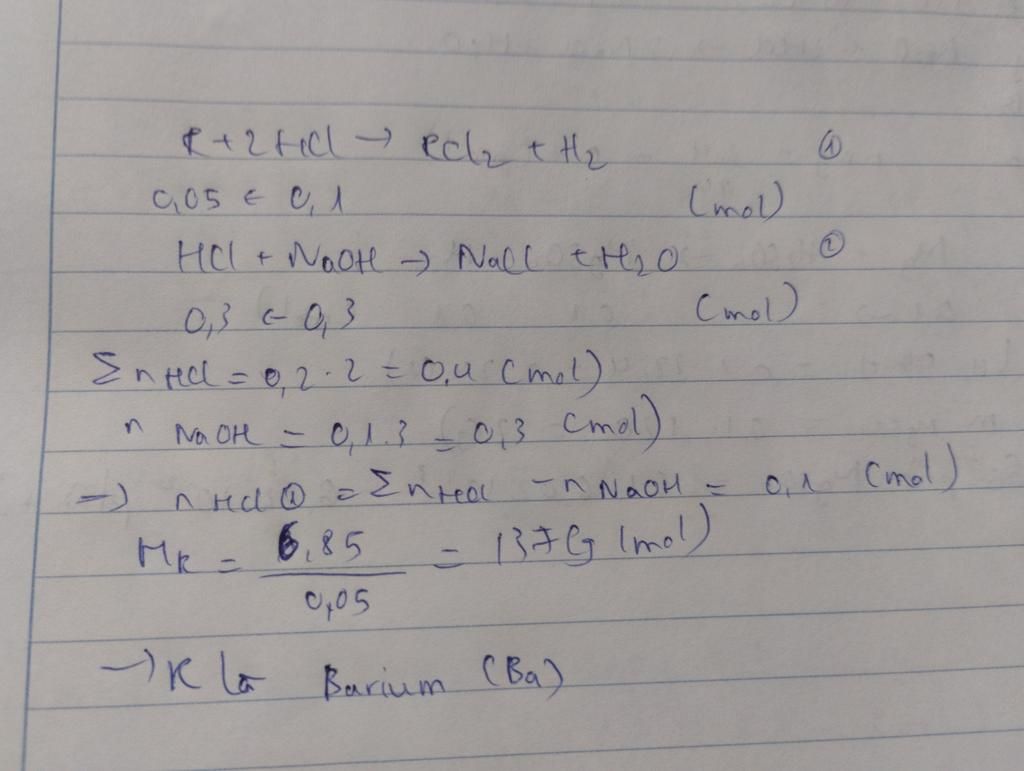 R + 2HCl → RCl₂ + H₂ ①
0,05 ← 0,1 (mol)
HCl + NaOH → NaCl + H₂O ②
0,3 ← 0,3 (mol)
Σ nHCl = 0,2 . 2 = 0,4 (mol)
n NaOH = 0,1.3 = 0,3 (mol)
→ nHCl ① = Σ nHCl - n NaOH = 0,1 (mol)
M_R = 6,85 / 0,05 = 137 (g/mol)
→ R là Barium (Ba)